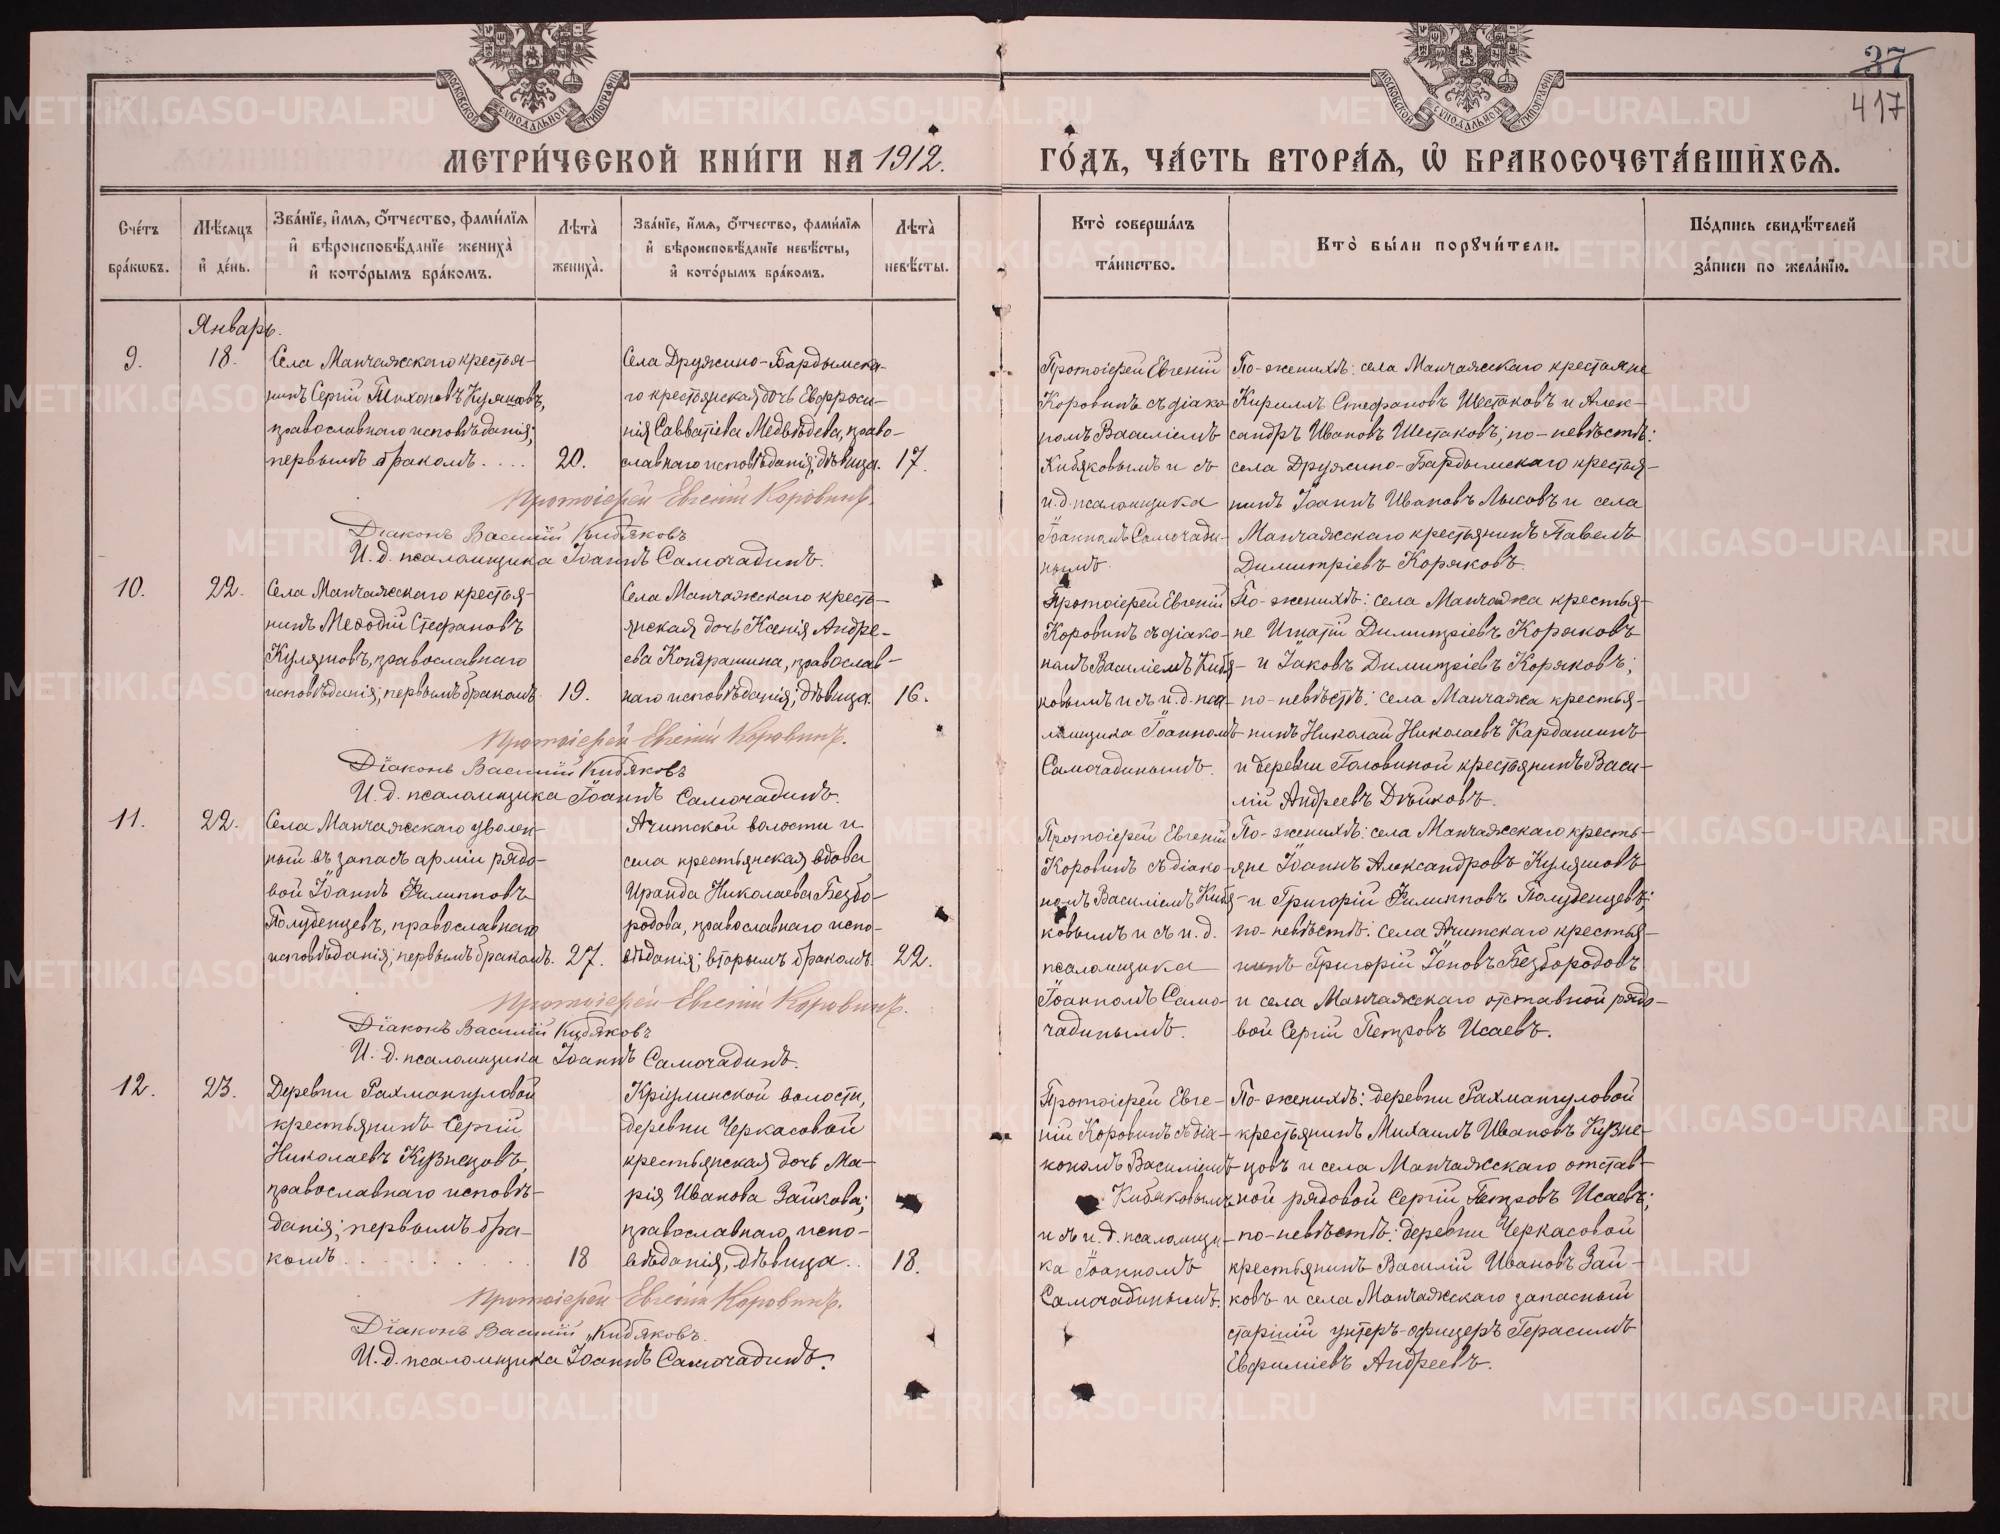 37
417
МОСКОВСКОЙ СѴНОДАЛЬНОЙ ТИПОГРАФІИ
МОСКОВСКОЙ СѴНОДАЛЬНОЙ ТИПОГРАФІИ
МЕТРИ́ЧЕСКОЙ КНИ́ГИ НА 1912. ГО́ДЪ, ЧА́СТЬ ВТОРА́Я, Ѡ БРАКОСОЧЕТА́ВШИХСЯ.
Сче́тъ
бра́кѡвъ.
Мѣ́сяцъ
и҆ де́нь.
Зва́нїе, и҆́мя, ѻ҆́тчество, фами́лїя
и҆ вѣроисповѣ́данїе жениха̀
и҆ кото́рымъ бра́комъ.
Лѣта̀
жениха̀.
Зва́нїе, и҆́мя, ѻ҆́тчество, фами́лїя
и҆ вѣроисповѣ́данїе невѣ́сты,
и҆ кото́рымъ бра́комъ.
Лѣта̀
невѣ́сты.
Кто̀ соверша́лъ
та́инство.
Кто̀ бы́ли порꙋчи́тели.
По́дпись свидѣ́телей
за́писи по жела́нїю.
Январь.
9.
18.
Села Манчажскаго крестья-
нинъ Сергій Тихоновъ Куляшовъ,
православнаго исповѣданія;
первымъ бракомъ. . . .
20.
Села Дружино-Бардымска-
го крестьянская дочь Евфроси-
нія Савватіева Медвѣдева, право-
славнаго исповѣданія, дѣвица.
17.
Протоіерей Евгеній
Коровинъ съ діако-
номъ Василіемъ
Кибяковымъ и съ
и. д. псаломщика
Іоанномъ Самочади-
нымъ.
По-женихѣ: села Манчажскаго крестьяне
Кириллъ Стефановъ Шестаковъ и Алек-
сандръ Ивановъ Шестаковъ; по-невѣстѣ:
села Дружино-Бардымскаго крестья-
нинъ Іоаннъ Ивановъ Лысовъ и села
Манчажскаго крестьянинъ Павелъ
Димитріевъ Коряковъ.
Протоіерей Евгеній Коровинъ.
Діаконъ Василій Кибяковъ
И. д. псаломщика Іоаннъ Самочадинъ.
10.
22.
Села Манчажскаго крестья-
нинъ Меѳодій Стефановъ
Куляшовъ, православнаго
исповѣданія; первымъ бракомъ.
19.
Села Манчажскаго кресть-
янская дочь Ксенія Андре-
ева Кондрашина, православ-
наго исповѣданія; дѣвица.
16.
Протоіерей Евгеній
Коровинъ съ діако-
номъ Василіемъ Кибя-
ковымъ и съ и. д. пса-
ломщика Іоанномъ
Самочадинымъ.
По-женихѣ: села Манчажа крестья-
не Игнатій Димитріевъ Коряковъ
и Іаковъ Димитріевъ Коряковъ;
по-невѣстѣ: села Манчажа крестья-
нинъ Николай Николаевъ Кардашинъ
и деревни Головиной крестьянинъ Васи-
лій Андреевъ Дѣйковъ.
Протоіерей Евгеній Коровинъ.
Діаконъ Василій Кибяковъ
И. д. псаломщика Іоаннъ Самочадинъ.
11.
22.
Села Манчажскаго уволен-
ный въ запасъ арміи рядо-
вой Іоаннъ Филипповъ
Полуденцевъ, православнаго
исповѣданія; первымъ бракомъ.
27.
Ачитской волости и
села крестьянская вдова
Ираида Николаева Безбо-
родова, православнаго испо-
вѣданія; вторымъ бракомъ.
22.
Протоіерей Евгеній
Коровинъ съ діако-
номъ Василіемъ Кибя-
ковымъ и съ и. д.
псаломщика
Іоанномъ Само-
чадинымъ.
По-женихѣ: села Манчажскаго кресть-
яне Іоаннъ Александровъ Куляшовъ
и Григорій Филипповъ Полуденцевъ;
по-невѣстѣ: села Ачитскаго крестья-
нинъ Григорій Іоновъ Безбородовъ
и села Манчажскаго отставной рядо-
вой Сергій Петровъ Исаевъ.
Протоіерей Евгеній Коровинъ.
Діаконъ Василій Кибяковъ
И. д. псаломщика Іоаннъ Самочадинъ.
12.
23.
Деревни Рахмангуловой
крестьянинъ Сергій
Николаевъ Кузнецовъ,
православнаго исповѣ-
данія; первымъ бра-
комъ. . . . . . . . . .
18
Кріулинской волости,
деревни Черкасовой
крестьянская дочь Ма-
рія Иванова Зайкова;
православнаго испо-
вѣданія, дѣвица. .
18.
Протоіерей Евге-
ній Коровинъ съ діа-
кономъ Василіемъ
Кибяковымъ
и съ и. д. псаломщи-
ка Іоанномъ
Самочадинымъ.
По-женихѣ: деревни Рахмангуловой
крестьянинъ Михаилъ Ивановъ Кузне-
цовъ и села Манчажскаго отстав-
ной рядовой Сергій Петровъ Исаевъ;
по-невѣстѣ: деревни Черкасовой
крестьянинъ Василій Ивановъ Зай-
ковъ и села Манчажскаго запасный
старшій унтеръ-офицеръ Герасимъ
Евфиміевъ Андреевъ.
Протоіерей Евгеній Коровинъ.
Діаконъ Василій Кибяковъ.
И. д. псаломщика Іоаннъ Самочадинъ.